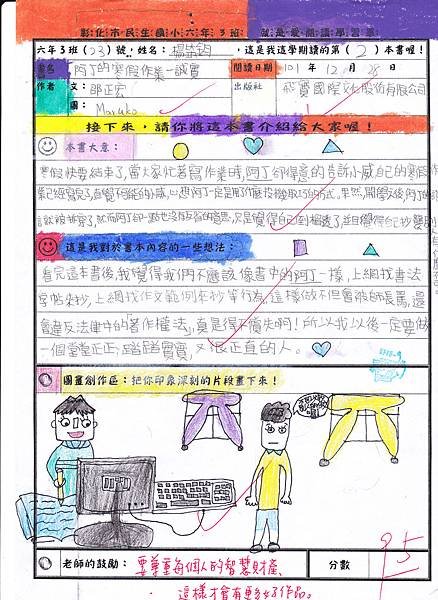 彰化市民生國小六年3班 就是愛閱讀學習單
六年3班(23)號，姓名：楊 ，這是我這學期讀的第(2)本書喔！
書名 阿丁的寒假作業—誠實 閱讀日期 101年12月28日
作者 文：鄒正宏 出版社 飛寶國際文化股份有限公司
圖：Maruko
接下來，請你將這本書介紹給大家喔！
本書大意：
寒假快要結束了，當大家忙著寫作業時，阿丁卻得意的告訴小威自己的寒假作
業已經寫完了，直覺不可能的小威，心想阿丁一定是用了什麼投機取巧的方式，果然，開學以後，阿丁的
就被拆穿了，然而阿丁卻一點也沒有反省的意思，只是覺得自己
這是我對於書本內容的一些想法：
看完這本書後，我覺得我們不應該像書中的阿丁一樣，上網找書法
字帖來抄，上網找作文範例來抄等行為，這樣做不但會被師長罵，還
會違反法律中的「著作權法」，真是得不償失啊！所以我以後一定要做
一個堂堂正正，踏踏實實，又很正直的人。
圖畫創作區：把你印象深刻的片段畫下來！
老師的鼓勵：要尊重每個人的智慧財產，
這樣才會有更多好作品。
分數
95